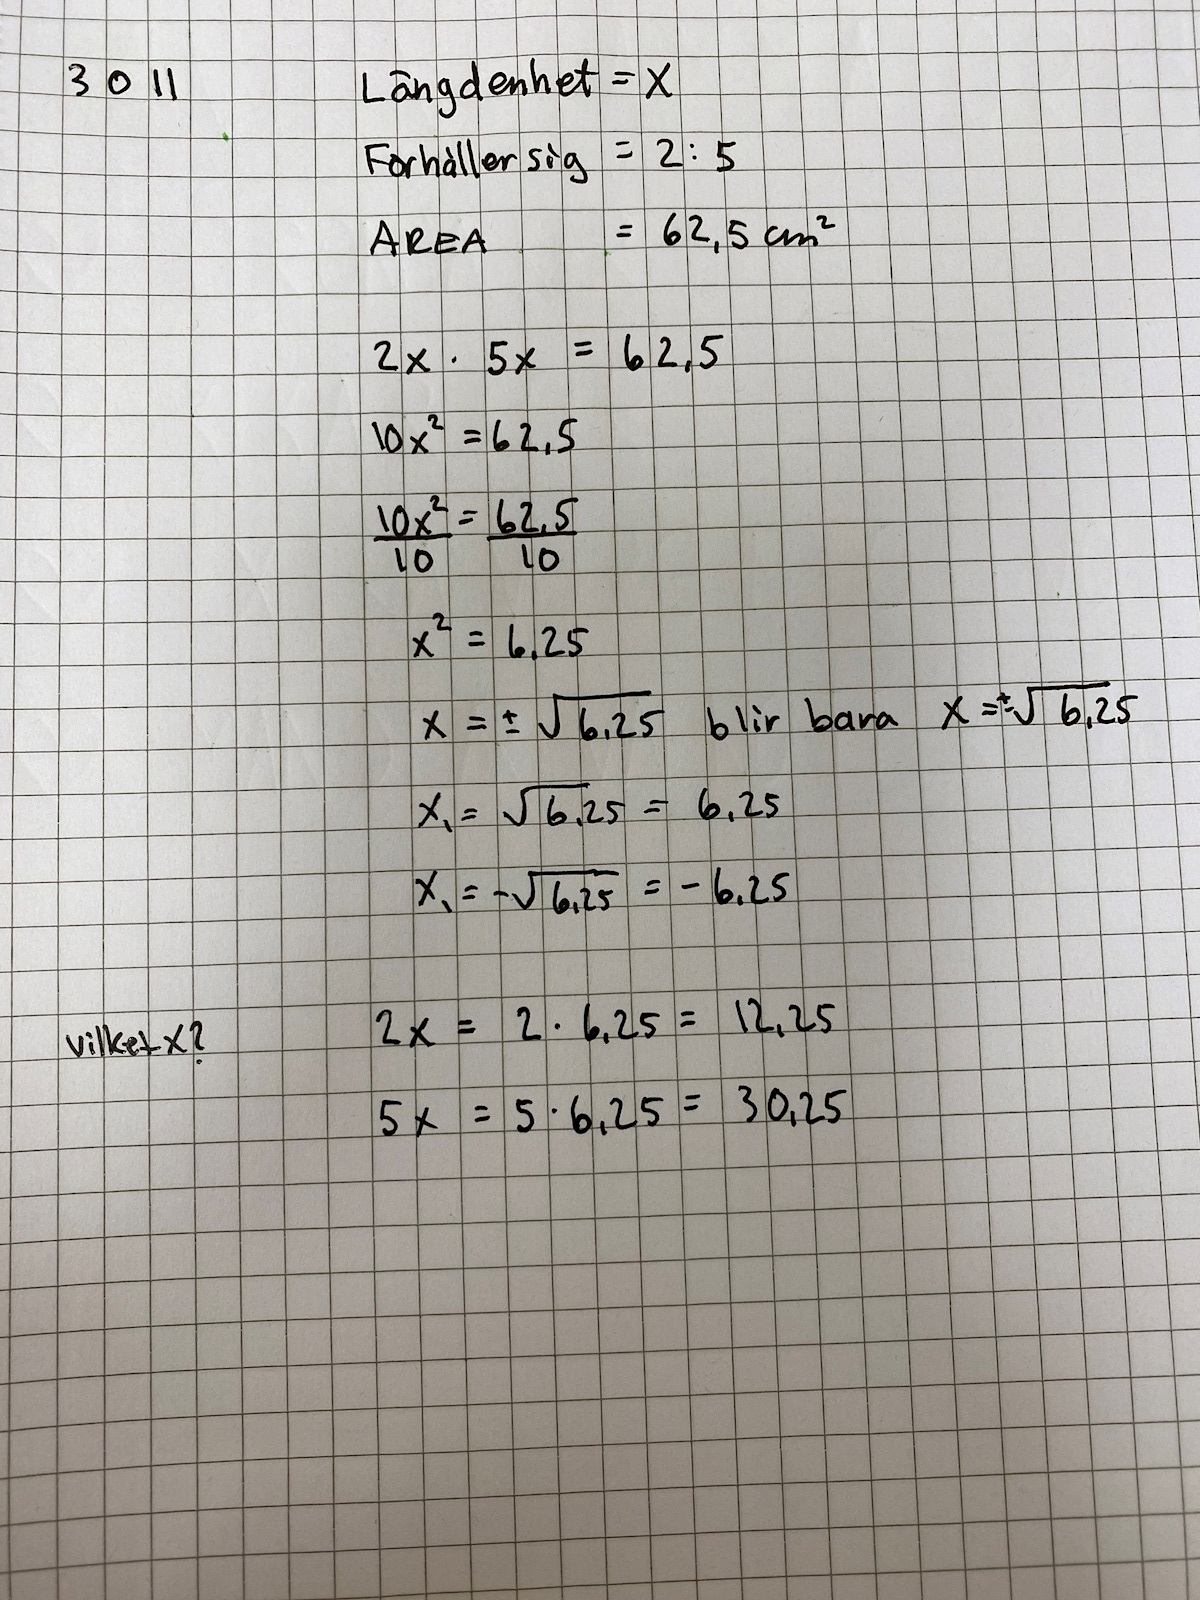 3011 Längdenhet = X
Förhåller sig = 2:5
AREA = 62,5 cm²
2x · 5x = 62,5
10x² = 62,5
10x²/10 = 62,5/10
x² = 6,25
x = ± √6,25 blir bara x = ±√6,25
x₁ = √6,25 = 6,25
x₁ = -√6,25 = -6,25
vilket x? 2x = 2 · 6,25 = 12,25
5x = 5 · 6,25 = 30,25